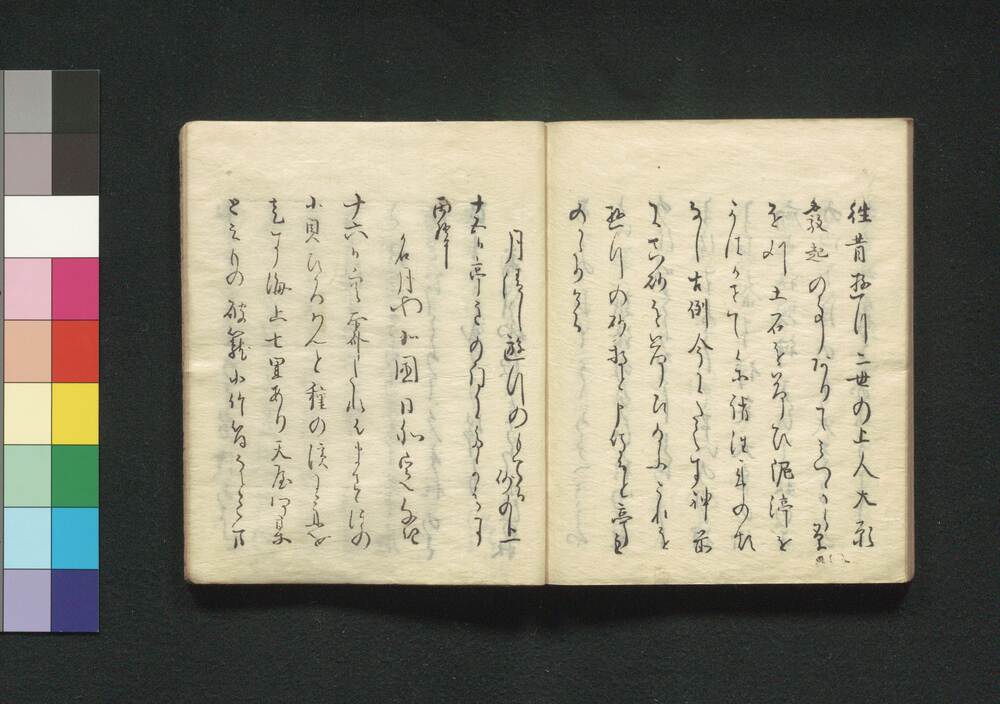 往昔遊行二世の上人大願
發起の事ありてみつから葦
を刈土石を荷ひ泥渟を
かはかせて参詣往来の煩
なし古例今にたえす神前
に真砂を荷ひ給ふこれを
遊行の砂持と申侍ると亭主
のかたりける
月清し遊行のもてる砂の上
十五日亭主の詞にたかはす
雨降
名月や北国日和定なき
十六日空霽たれはますほの
小貝ひろはんと種の濱に舟を
走す海上七里あり天屋何某
と云もの破籠小竹筒